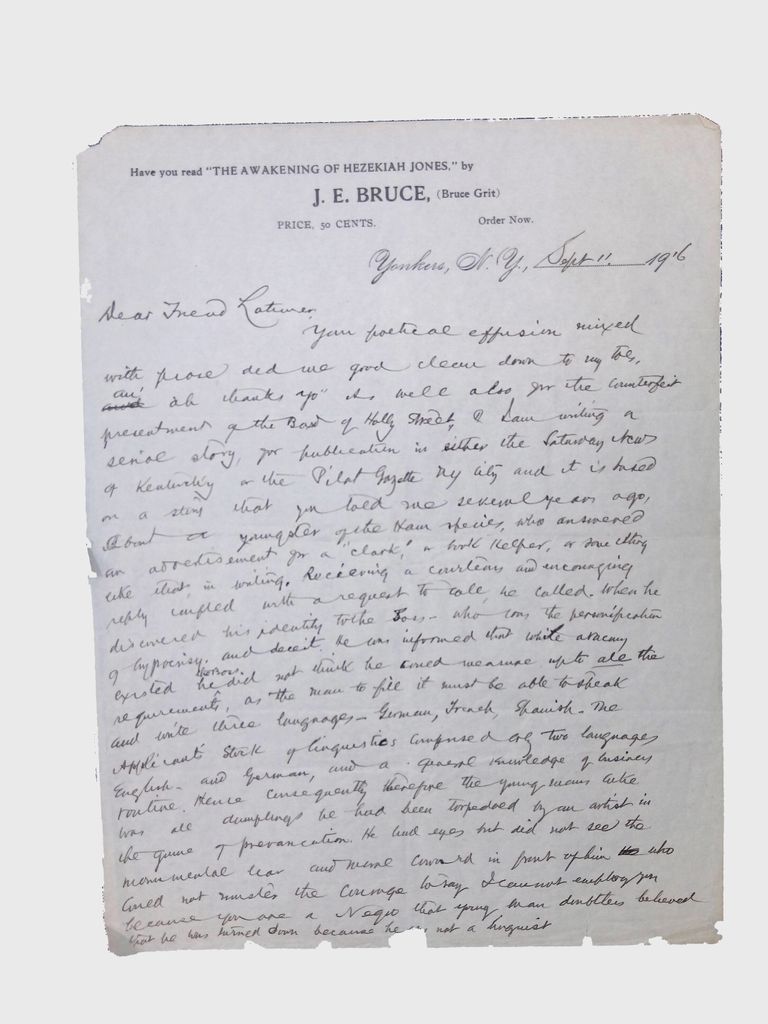 Have you read "THE AWAKENING OF HEZEKIAH JONES." by
J. E. BRUCE, (Bruce Grit)
PRICE, 50 CENTS. Order Now.
Yonkers, N. Y., Sept 11. 1916
Dear Friend Latimer,
Your poetical effusion mixed
with prose did me good clean down to my toes,
an' ah thanks yo" As well also for the counterfeit
presentment of the Bard of Holly Street, I am writing a
serial story, for publication in either the Saturday News
of Kentucky or the Pilot Gazette NY City and it is based
on a story that you told me several years ago,
About a youngster of the Ham species, who answered
an advertisement for a "clark," or work Helper, or something
like that, in writing. Receiving a courteous and encouraging
reply coupled with a request to call, he called. When he
discovered his identity to the Boss - who was the personification
of hypocrisy. and deceit. He was informed that while a vacancy
existed he the Boss. did not think he could measure up to all the
requirements, as the man to fill it must be able to speak
and write three languages - German, French, Spanish. The
Applicants Stock of linguistics comprised only two languages
English - and German, and a general knowledge of business
routine. Hence consequently therefore the young mans cake
was all dumplings he had been torpedoed by an artist in
the game of prevarication. He had eyes but did not see the
monumental liar and moral coward in front of him who
could not muster the courage to say I cannot employ you
because you are a Negro that young man doubtless believed
that he was turned down because he was not a linguist